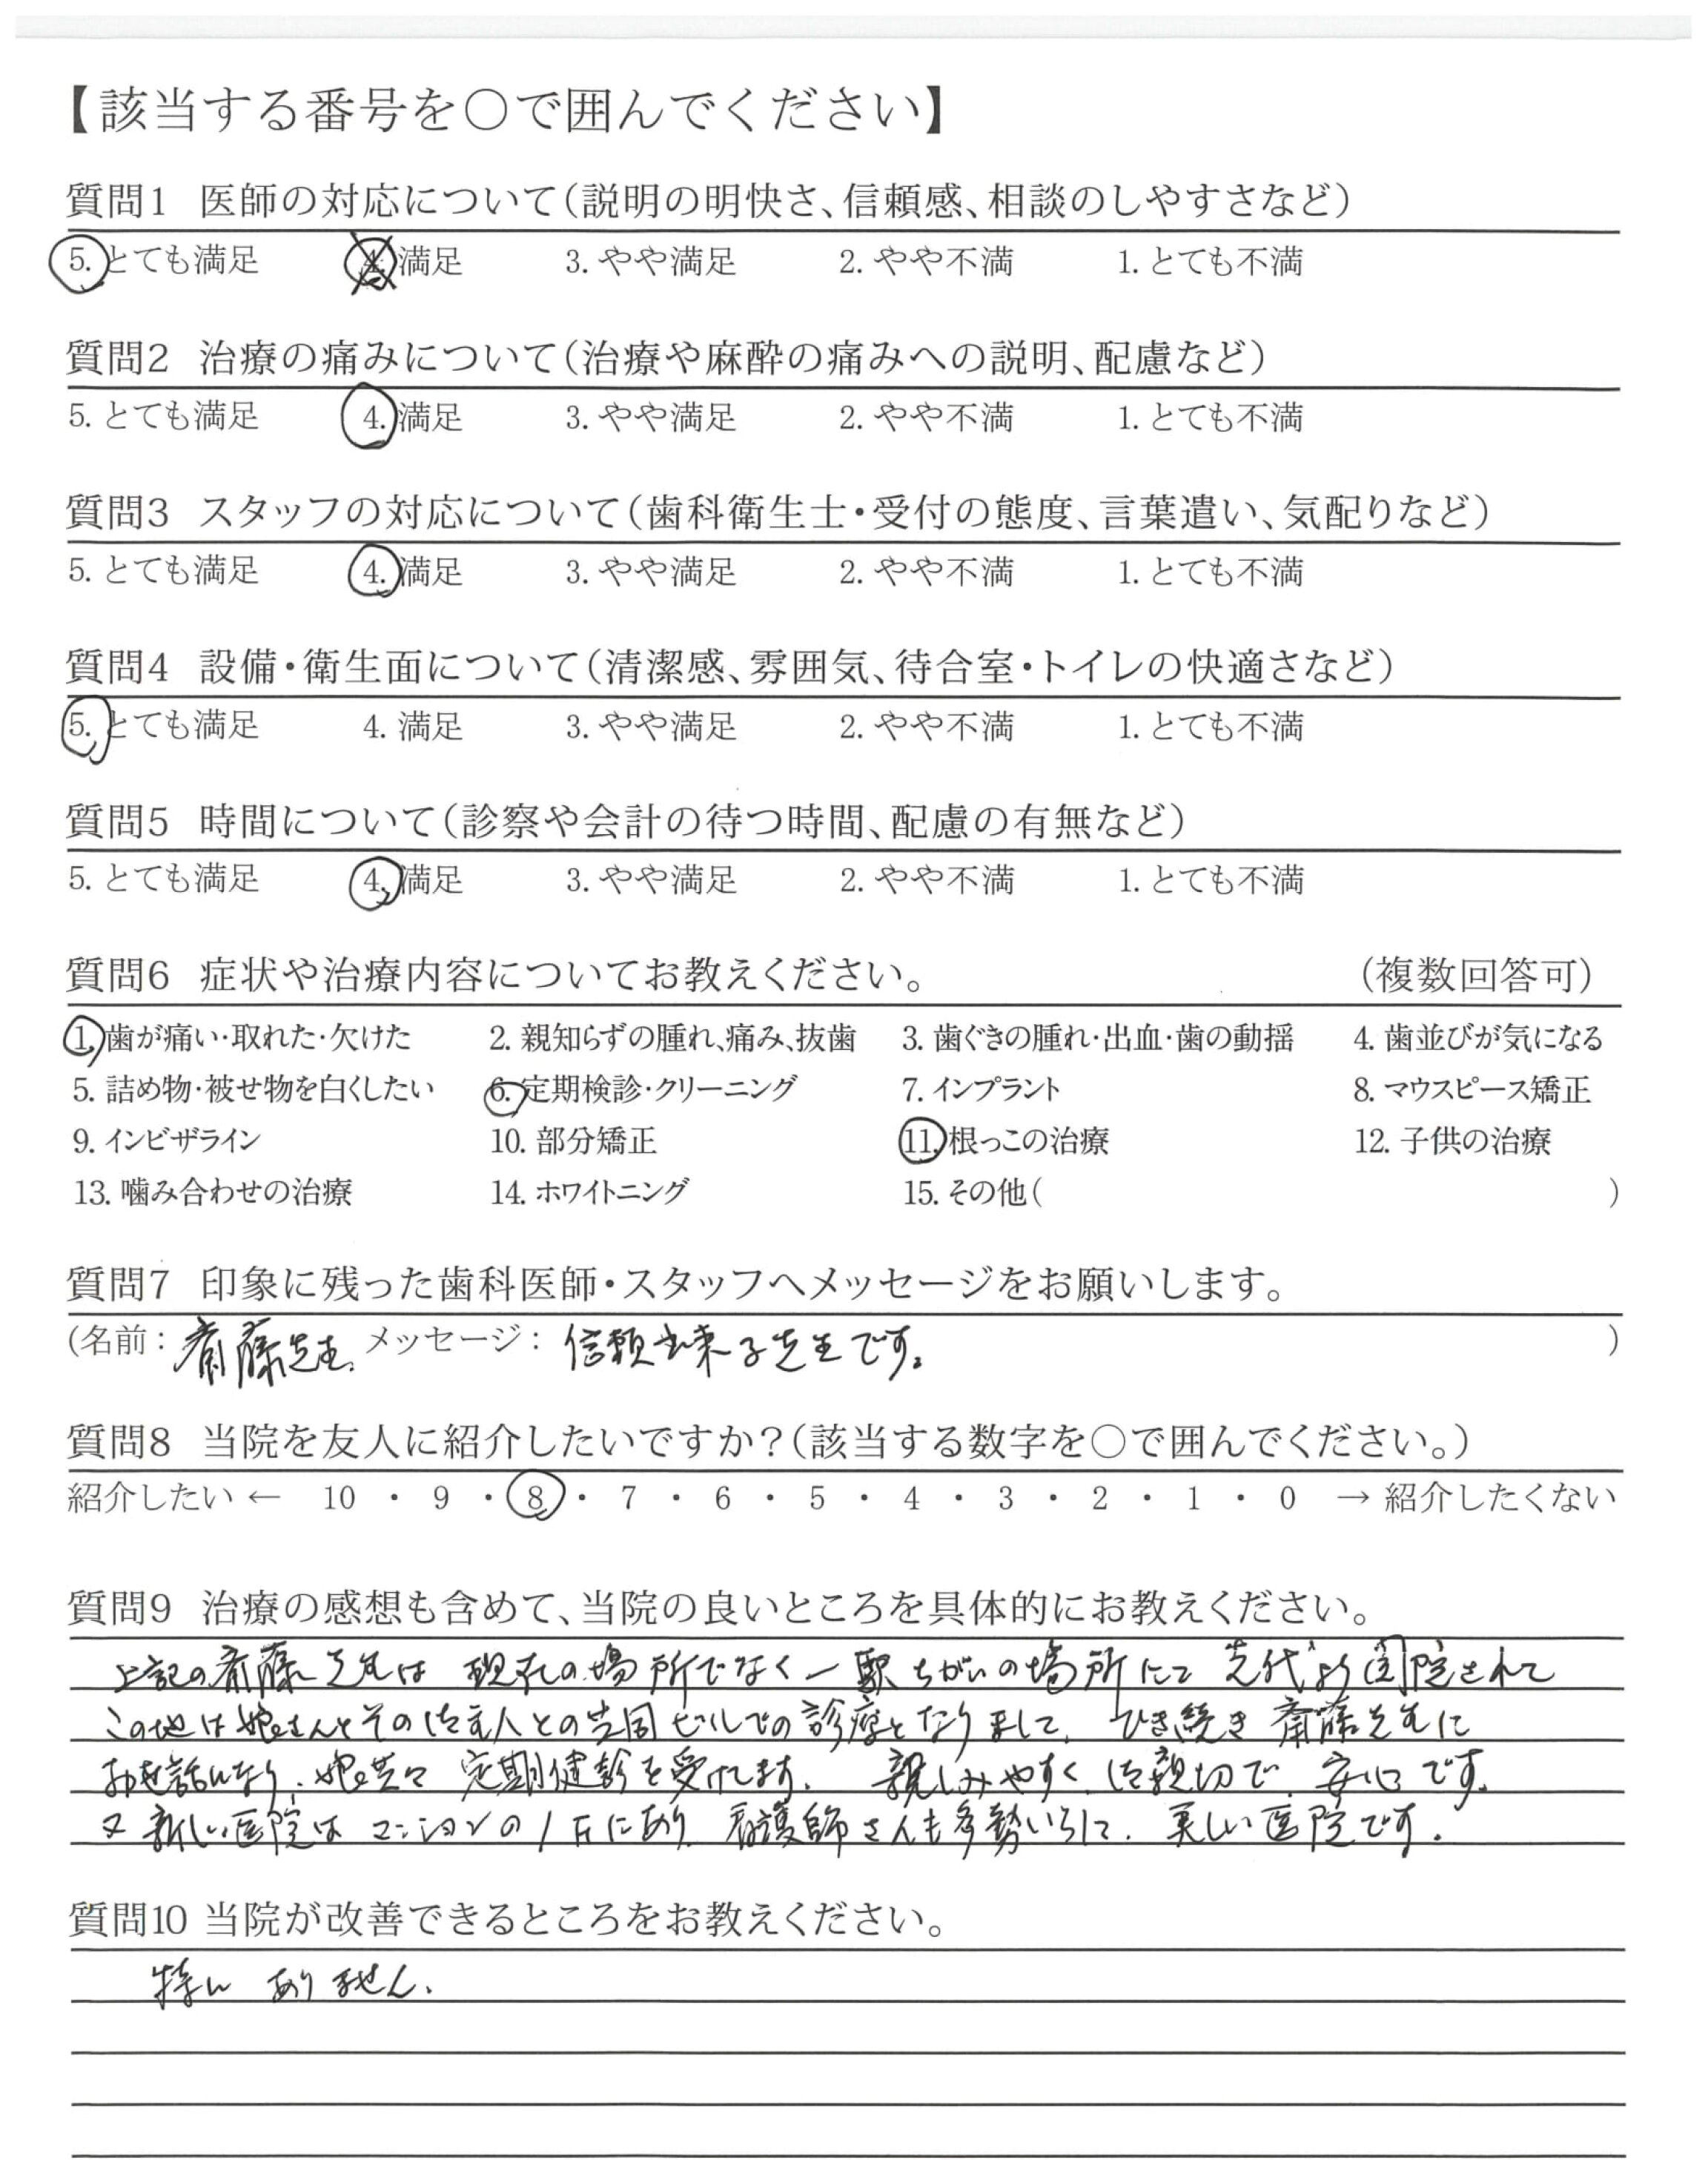 【該当する番号を○で囲んでください】
質問1 医師の対応について(説明の明快さ、信頼感、相談のしやすさなど)
5. とても満足 4. 満足 3. やや満足 2. やや不満 1. とても不満
質問2 治療の痛みについて(治療や麻酔の痛みへの説明、配慮など)
5. とても満足 4. 満足 3. やや満足 2. やや不満 1. とても不満
質問3 スタッフの対応について(歯科衛生士・受付の態度、言葉遣い、気配りなど)
5. とても満足 4. 満足 3. やや満足 2. やや不満 1. とても不満
質問4 設備・衛生面について(清潔感、雰囲気、待合室・トイレの快適さなど)
5. とても満足 4. 満足 3. やや満足 2. やや不満 1. とても不満
質問5 時間について(診察や会計の待つ時間、配慮の有無など)
5. とても満足 4. 満足 3. やや満足 2. やや不満 1. とても不満
質問6 症状や治療内容についてお教えください。 (複数回答可)
1. 歯が痛い・取れた・欠けた 2. 親知らずの腫れ、痛み、抜歯 3. 歯ぐきの腫れ・出血・歯の動揺 4. 歯並びが気になる
5. 詰め物・被せ物を白くしたい 6. 定期検診・クリーニング 7. インプラント 8. マウスピース矯正
9. インビザライン 10. 部分矯正 11. 根っこの治療 12. 子供の治療
13. 噛み合わせの治療 14. ホワイトニング 15. その他( )
質問7 印象に残った歯科医師・スタッフへメッセージをお願いします。
(名前: 斎藤先生. メッセージ: 信頼出来る先生です。 )
質問8 当院を友人に紹介したいですか?(該当する数字を○で囲んでください。)
紹介したい ← 10 ・ 9 ・ 8 ・ 7 ・ 6 ・ 5 ・ 4 ・ 3 ・ 2 ・ 1 ・ 0 → 紹介したくない
質問9 治療の感想も含めて、当院の良いところを具体的にお教えください。
上記の斎藤先生は 現在の場所でなく一駅ちがいの場所にて 先代より開院されて
この地は娘さんとその御主人との共同ビルでの診療となりまして、ひき続き 斎藤先生に
お世話になり、娘共々 定期健診を受けてます. 親しみやすく、御親切で 安心です.
又 新しい医院は マンションの1Fにあり、看護師さんも多勢いらして、美しい医院です.
質問10 当院が改善できるところをお教えください。
特に ありません.